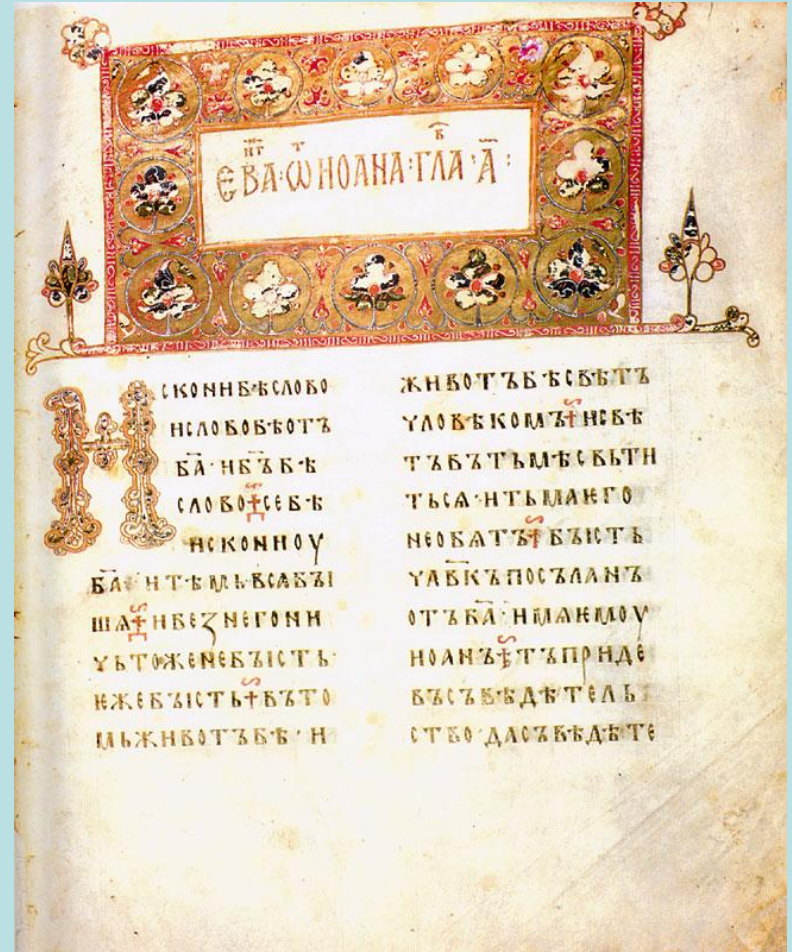 ЕВА҃НГ·Ѡ҃Т ИОАНА·ГЛА҃В·А҃:
ИСКОНИБѢСЛОВО
ИСЛОВОБѢОТЪ
БА҃·ИБЪ҃БѢ
СЛОВО☦СЕБѢ
ИСКОНИОУ
БА҃·ИТѢМЬВСѦБЫ
ШѦ☦ИБЕЗНЕГОНИ
ЧЬТОЖЕНЕБЪІСТЬ·
ѤЖЕБЪІСТЬ☦ВЪТО
МЬЖИВОТЪБѢ·И
ЖИВОТЪБѢСВѢТЪ
ЧЛОВѢКОМЪ☦ИСВѢ
ТЪВЪТЬМѢСВЬТИ
ТЬСѦ·ИТЬМАѤГО
НЕОБѦТЪ☦БЪІСТЬ
ЧЛА҃ВКЪПОСЪЛАНЪ
ОТЪБА҃·ИМѦѤМОУ
ИОАНЪ☦ТЪПРИДЕ
ВЪСЪВѢДѢТЕЛЬ
СТВО·ДАСЪВѢДѢТЕ